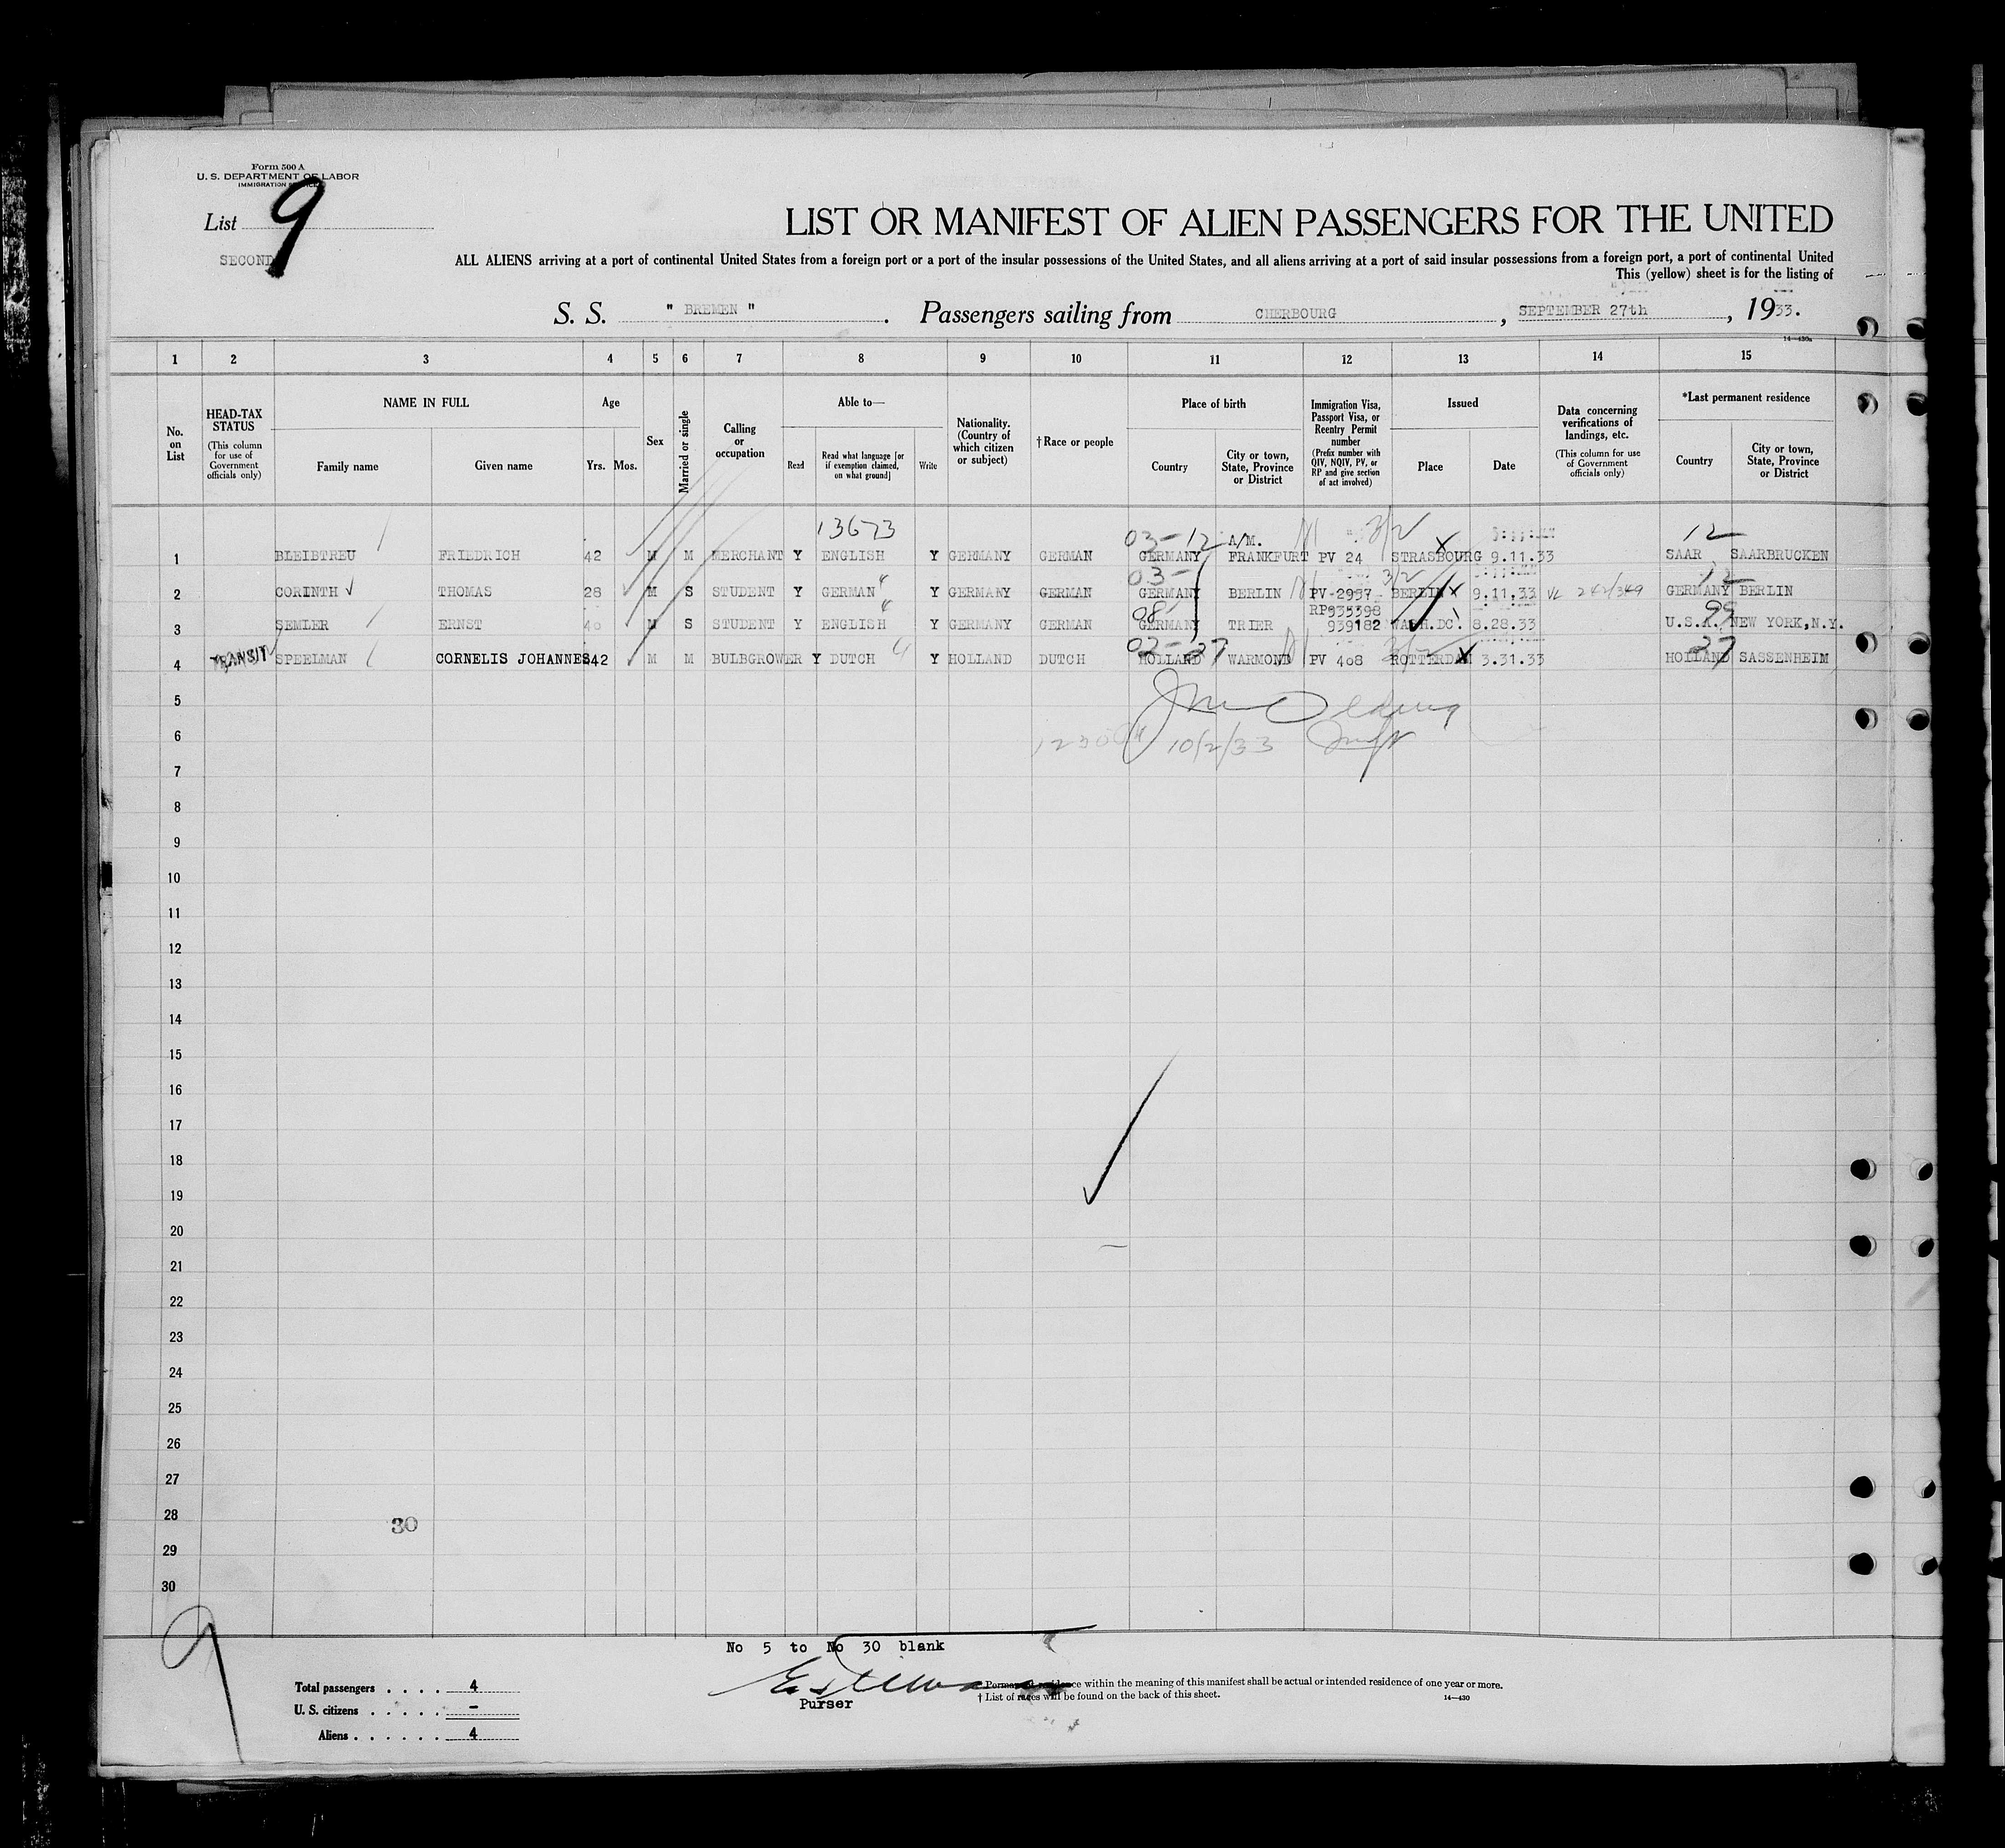 Form 500 A
U. S. DEPARTMENT OF LABOR
IMMIGRATION SERVICE
List 9
SECOND
LIST OR MANIFEST OF ALIEN PASSENGERS FOR THE UNITED
ALL ALIENS arriving at a port of continental United States from a foreign port or a port of the insular possessions of the United States, and all aliens arriving at a port of said insular possessions from a foreign port, a port of continental United
This (yellow) sheet is for the listing of
S. S. " BREMEN " . Passengers sailing from CHERBOURG , SEPTEMBER 27th , 1933.
14—430a
1 2 3 4 5 6 7 8 9 10 11 12 13 14 15
No. on List
HEAD-TAX STATUS (This column for use of Government officials only)
NAME IN FULL Family name Given name
Age Yrs. Mos.
Sex
Married or single
Calling or occupation
Able to— Read Read what language [or if exemption claimed, on what ground] Write
Nationality. (Country of which citizen or subject)
†Race or people
Place of birth Country City or town, State, Province or District
Immigration Visa, Passport Visa, or Reentry Permit number (Prefix number with QIV, NQIV, PV, or RP and give section of act involved)
Issued Place Date
Data concerning verifications of landings, etc. (This column for use of Government officials only)
*Last permanent residence Country City or town, State, Province or District
13673 03-12 A/M. 3/2 12
1 BLEIBTREU FRIEDRICH 42 M M MERCHANT Y ENGLISH Y GERMANY GERMAN GERMANY FRANKFURT PV 24 STRASBOURG 9.11.33 SAAR SAARBRUCKEN
03- 3/2 12
2 CORINTH THOMAS 28 M S STUDENT Y GERMAN Y GERMANY GERMAN GERMANY BERLIN PV-2957 BERLIN 9.11.33 VL 242/349 GERMANY BERLIN
08- RP835398 99
3 SEMLER ERNST 40 M S STUDENT Y ENGLISH Y GERMANY GERMAN GERMANY TRIER 939182 WASH.DC. 8.28.33 U.S.A. NEW YORK,N.Y.
02-27 27
4 TRANSIT SPEELMAN CORNELIS JOHANNES 42 M M BULBGROWER Y DUTCH Y HOLLAND DUTCH HOLLAND WARMOND PV 408 ROTTERDAM 3.31.33 HOLLAND SASSENHEIM
5
6 10/2/33 Insp
7
8
9
10
11
12
13
14
15
16
17
18
19
20
21
22
23
24
25
26
27
28 30
29
30
9
No 5 to No 30 blank
Purser
Total passengers . . . . 4
U. S. citizens . . . . . —
Aliens . . . . . . 4
* Permanent residence within the meaning of this manifest shall be actual or intended residence of one year or more.
† List of races will be found on the back of this sheet.
14—430